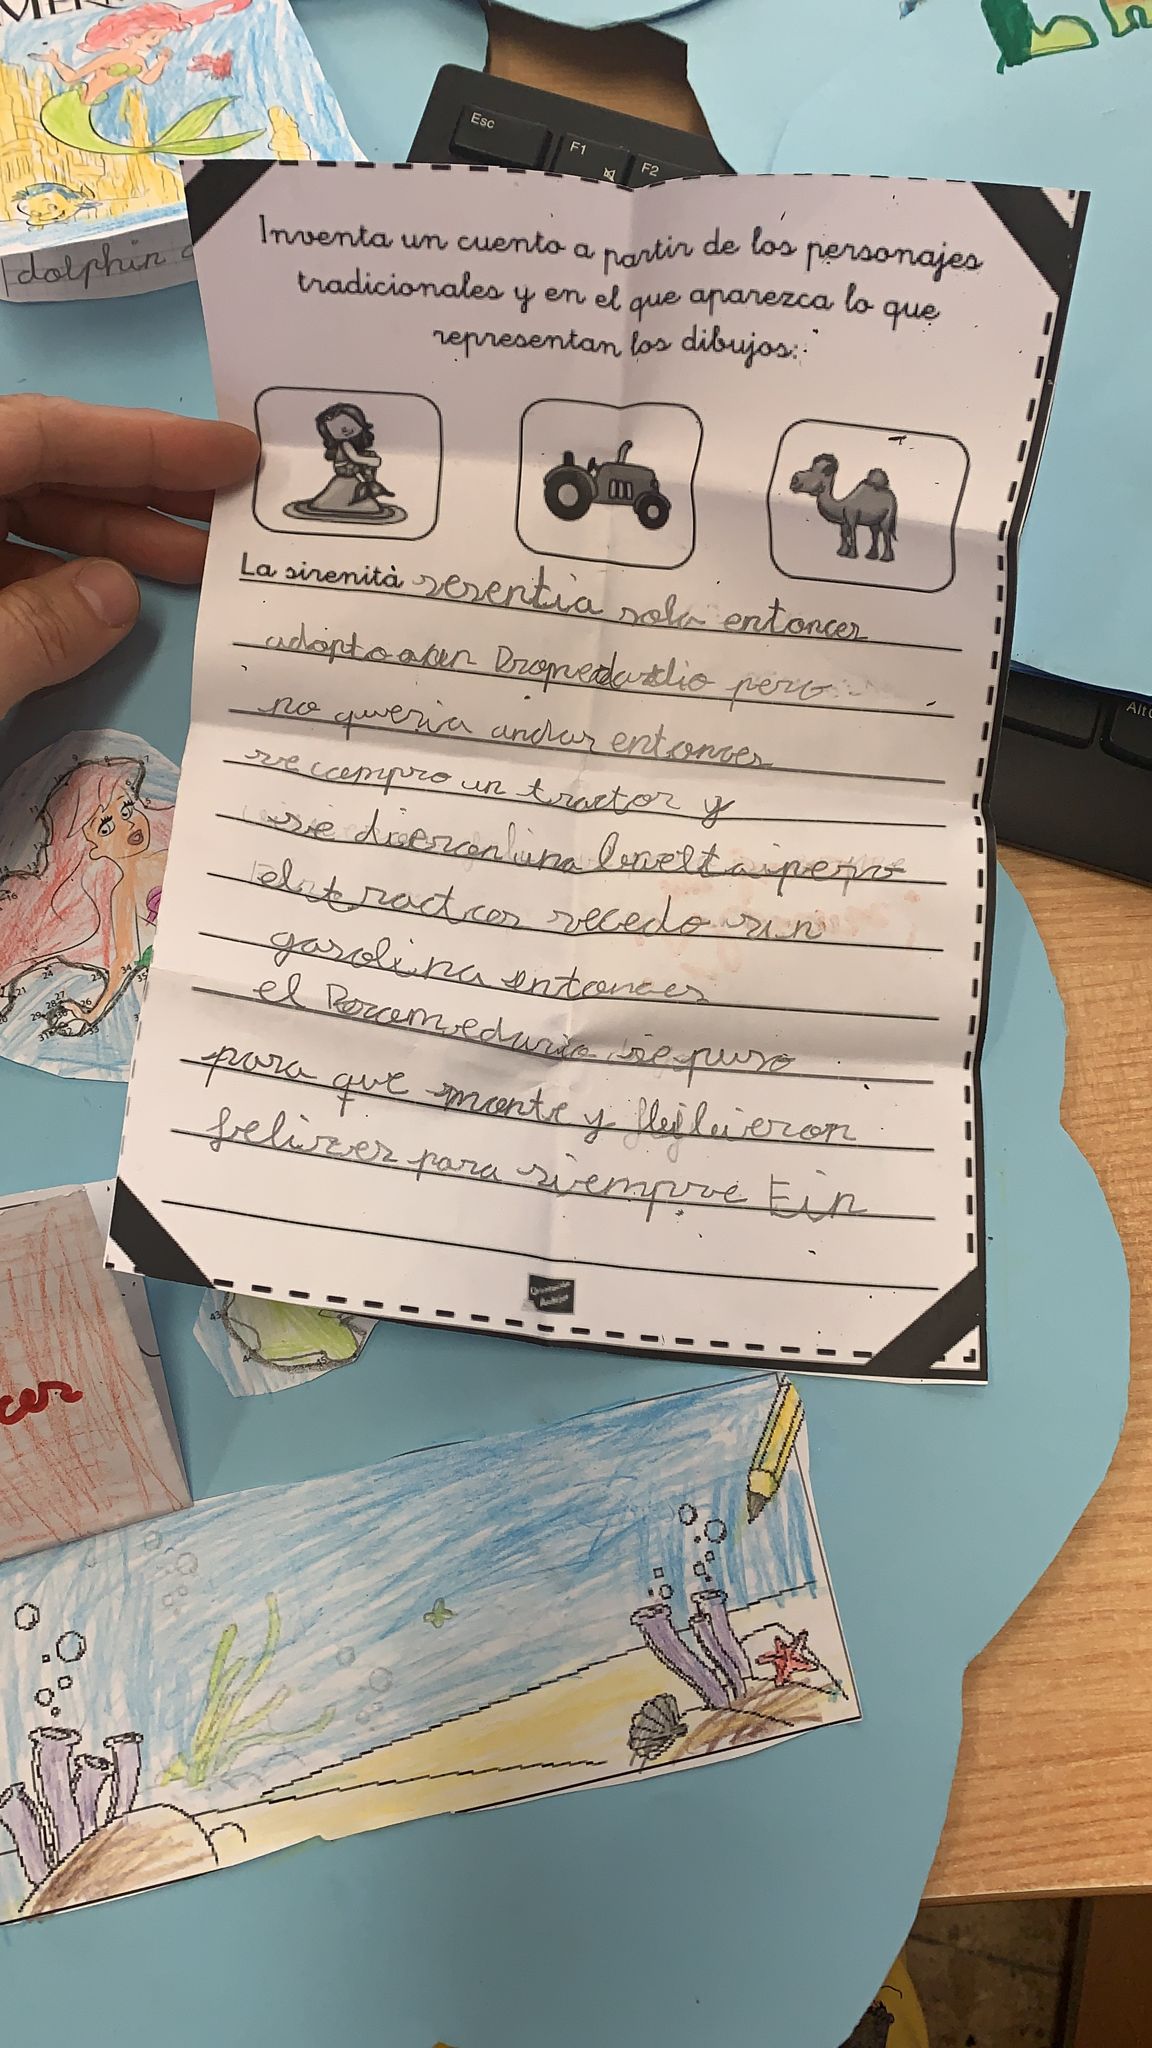 dolphin
Esc
F1
F2
Alt
Inventa un cuento a partir de los personajes
tradicionales y en el que aparezca lo que
representan los dibujos:
La sirenità sesentia sola entonces
adopto aun Dromedardio pero
no queria andar entonces
se compro un tractor y
se dieron una buelta pero
el tractor secedo sin
gasolina entonces
el Doromedario se puso
para que monte y fueron
felizes para siempre Fin